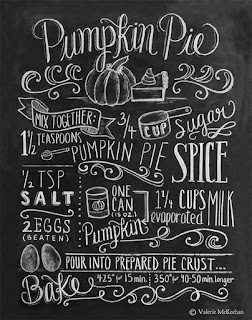 Pumpkin Pie
MIX TOGETHER:
3/4 CUP Sugar
1 1/2 TEASPOONS
PUMPKIN PIE SPICE
1/2 TSP
SALT
2 EGGS
(BEATEN)
ONE
CAN
(15 OZ.)
Pumpkin
1 1/4 CUPS MILK
evaporated
POUR INTO PREPARED PIE CRUST...
Bake
425° for 15 min.
350° for 40-50 min. longer
© Valerie McKeehan